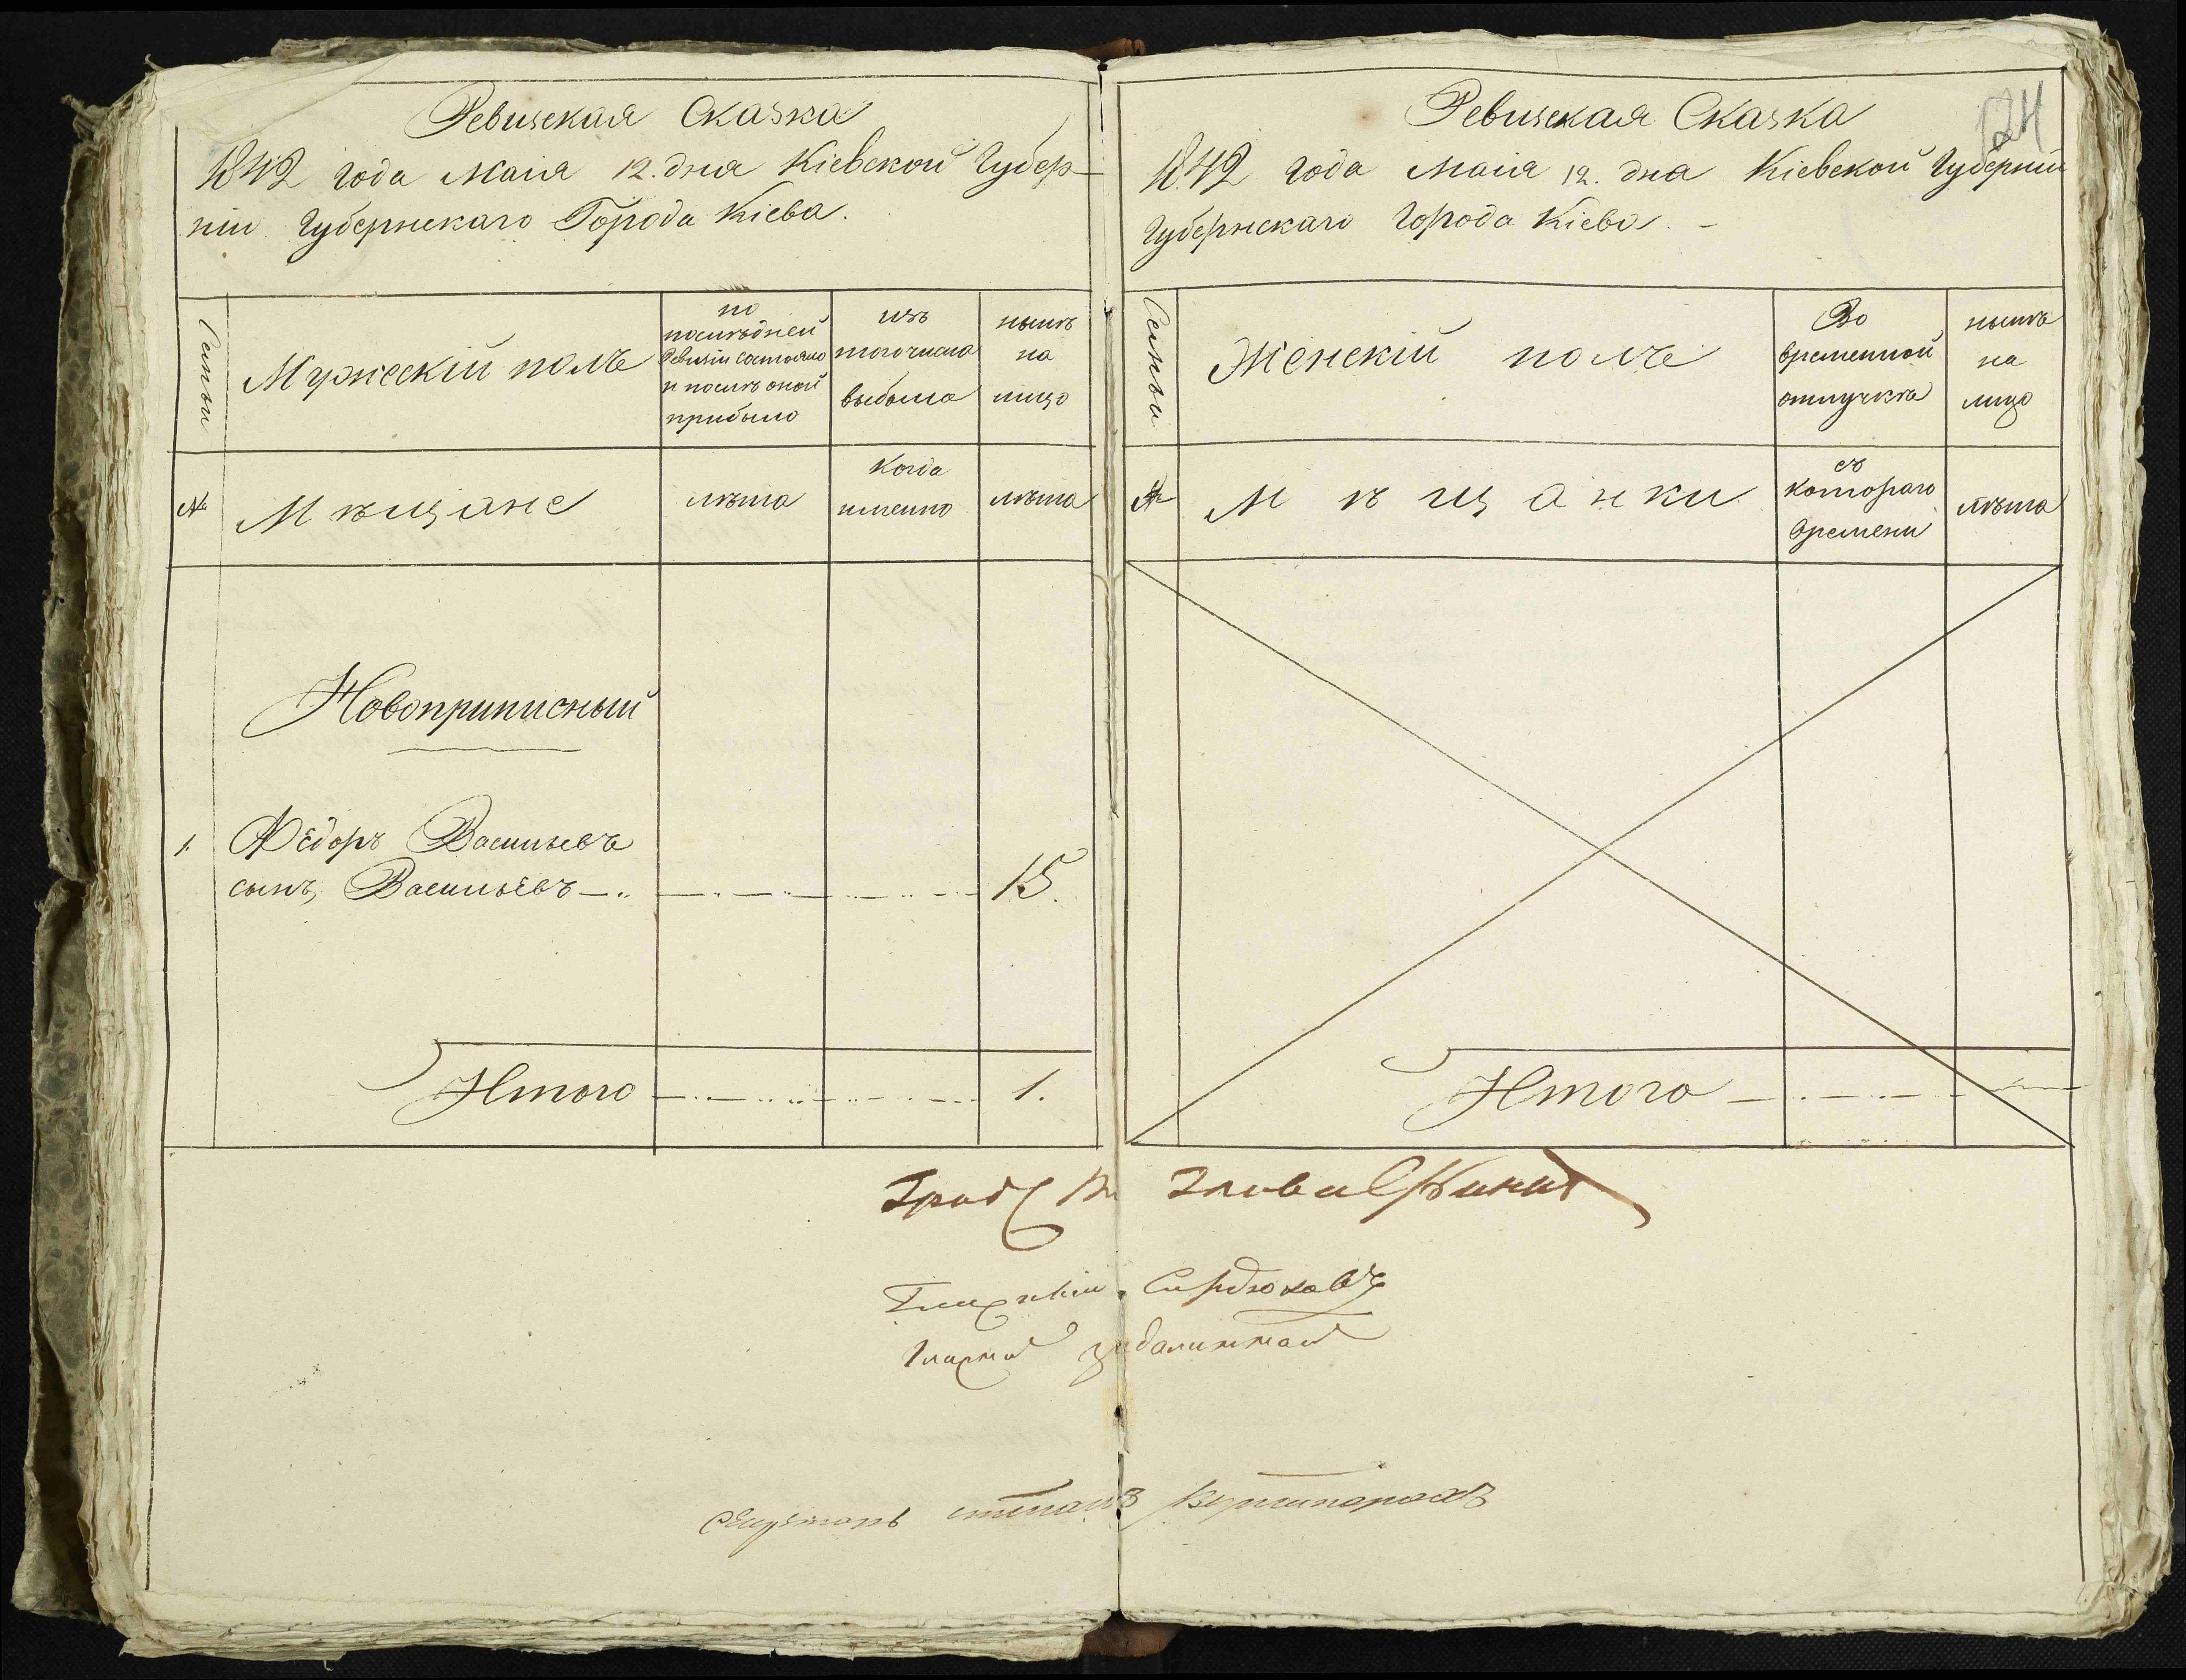 Ревизская Сказка
1842 года Маія 12. дня Кіевской Губер-
ніи Губернскаго Города Кіева.
Семьи
Мужескій полъ
по
послѣдней
Ревизіи состояло
и послѣ оной
прибыло
изъ
того числа
выбыло
нынѣ
на
лицо
№
Мѣщане
лѣта
когда
именно
лѣта
Новоприписный
1. Фёдоръ Васильевъ
сынъ Васильёвъ 15.
Итого 1.
124
Ревизская Сказка
1842 года Маія 12. дня Кіевской Губерніи
Губернскаго Города Кіева. -
Семьи
Женскій полъ
Во
временной
отлучкѣ
нынѣ
на
лицо
№
Мѣщанки
съ
котораго
времени
лѣта
Итого
Град Глава
Гласный Сердюковъ
Гласный
Секретарь